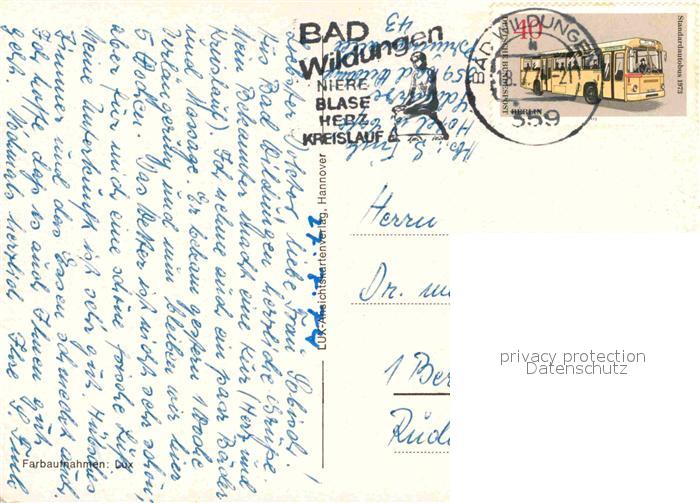 BAD
Wildungen
NIERE
BLASE
HERZ
KREISLAUF
BAD WILDUNGEN
-21
359
40
DEUTSCHE BUNDESPOST
BERLIN
Standardautobus 1973
359 Bad Wildungen
43
Lieber Doktor, liebe Frau
Aus Bad Wildungen herzliche Grüße.
Mein macht eine Kur (Herz und
Kreislauf). Ich nehme auch ein paar Bäder
und Massage. Er bekam gestern 1 Woche
Verlängerung und nun bleiben wir hier
5 Wochen. Das Wetter ist nicht sehr schön,
aber für mich eine schöne frische Luft.
Meine Unterkunft ist sehr gut. Hübsches
und das Essen schmeckt auch.
Ich hoffe, daß es auch Ihnen gut
geht. Nochmals herzlich Ihre
LUX-Ansichtskartenverlag, Hannover
Farbaufnahmen: Lux
Herrn
Dr. m
1 Ber
Rüd
privacy protection
Datenschutz